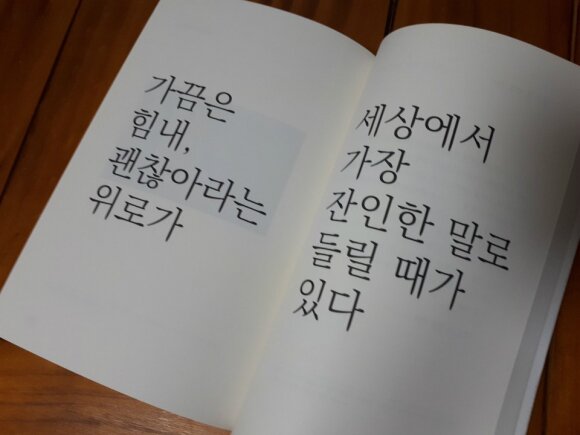 가끔은
힘내,
괜찮아라는
위로가
세상에서
가장
잔인한 말로
들릴 때가
있다